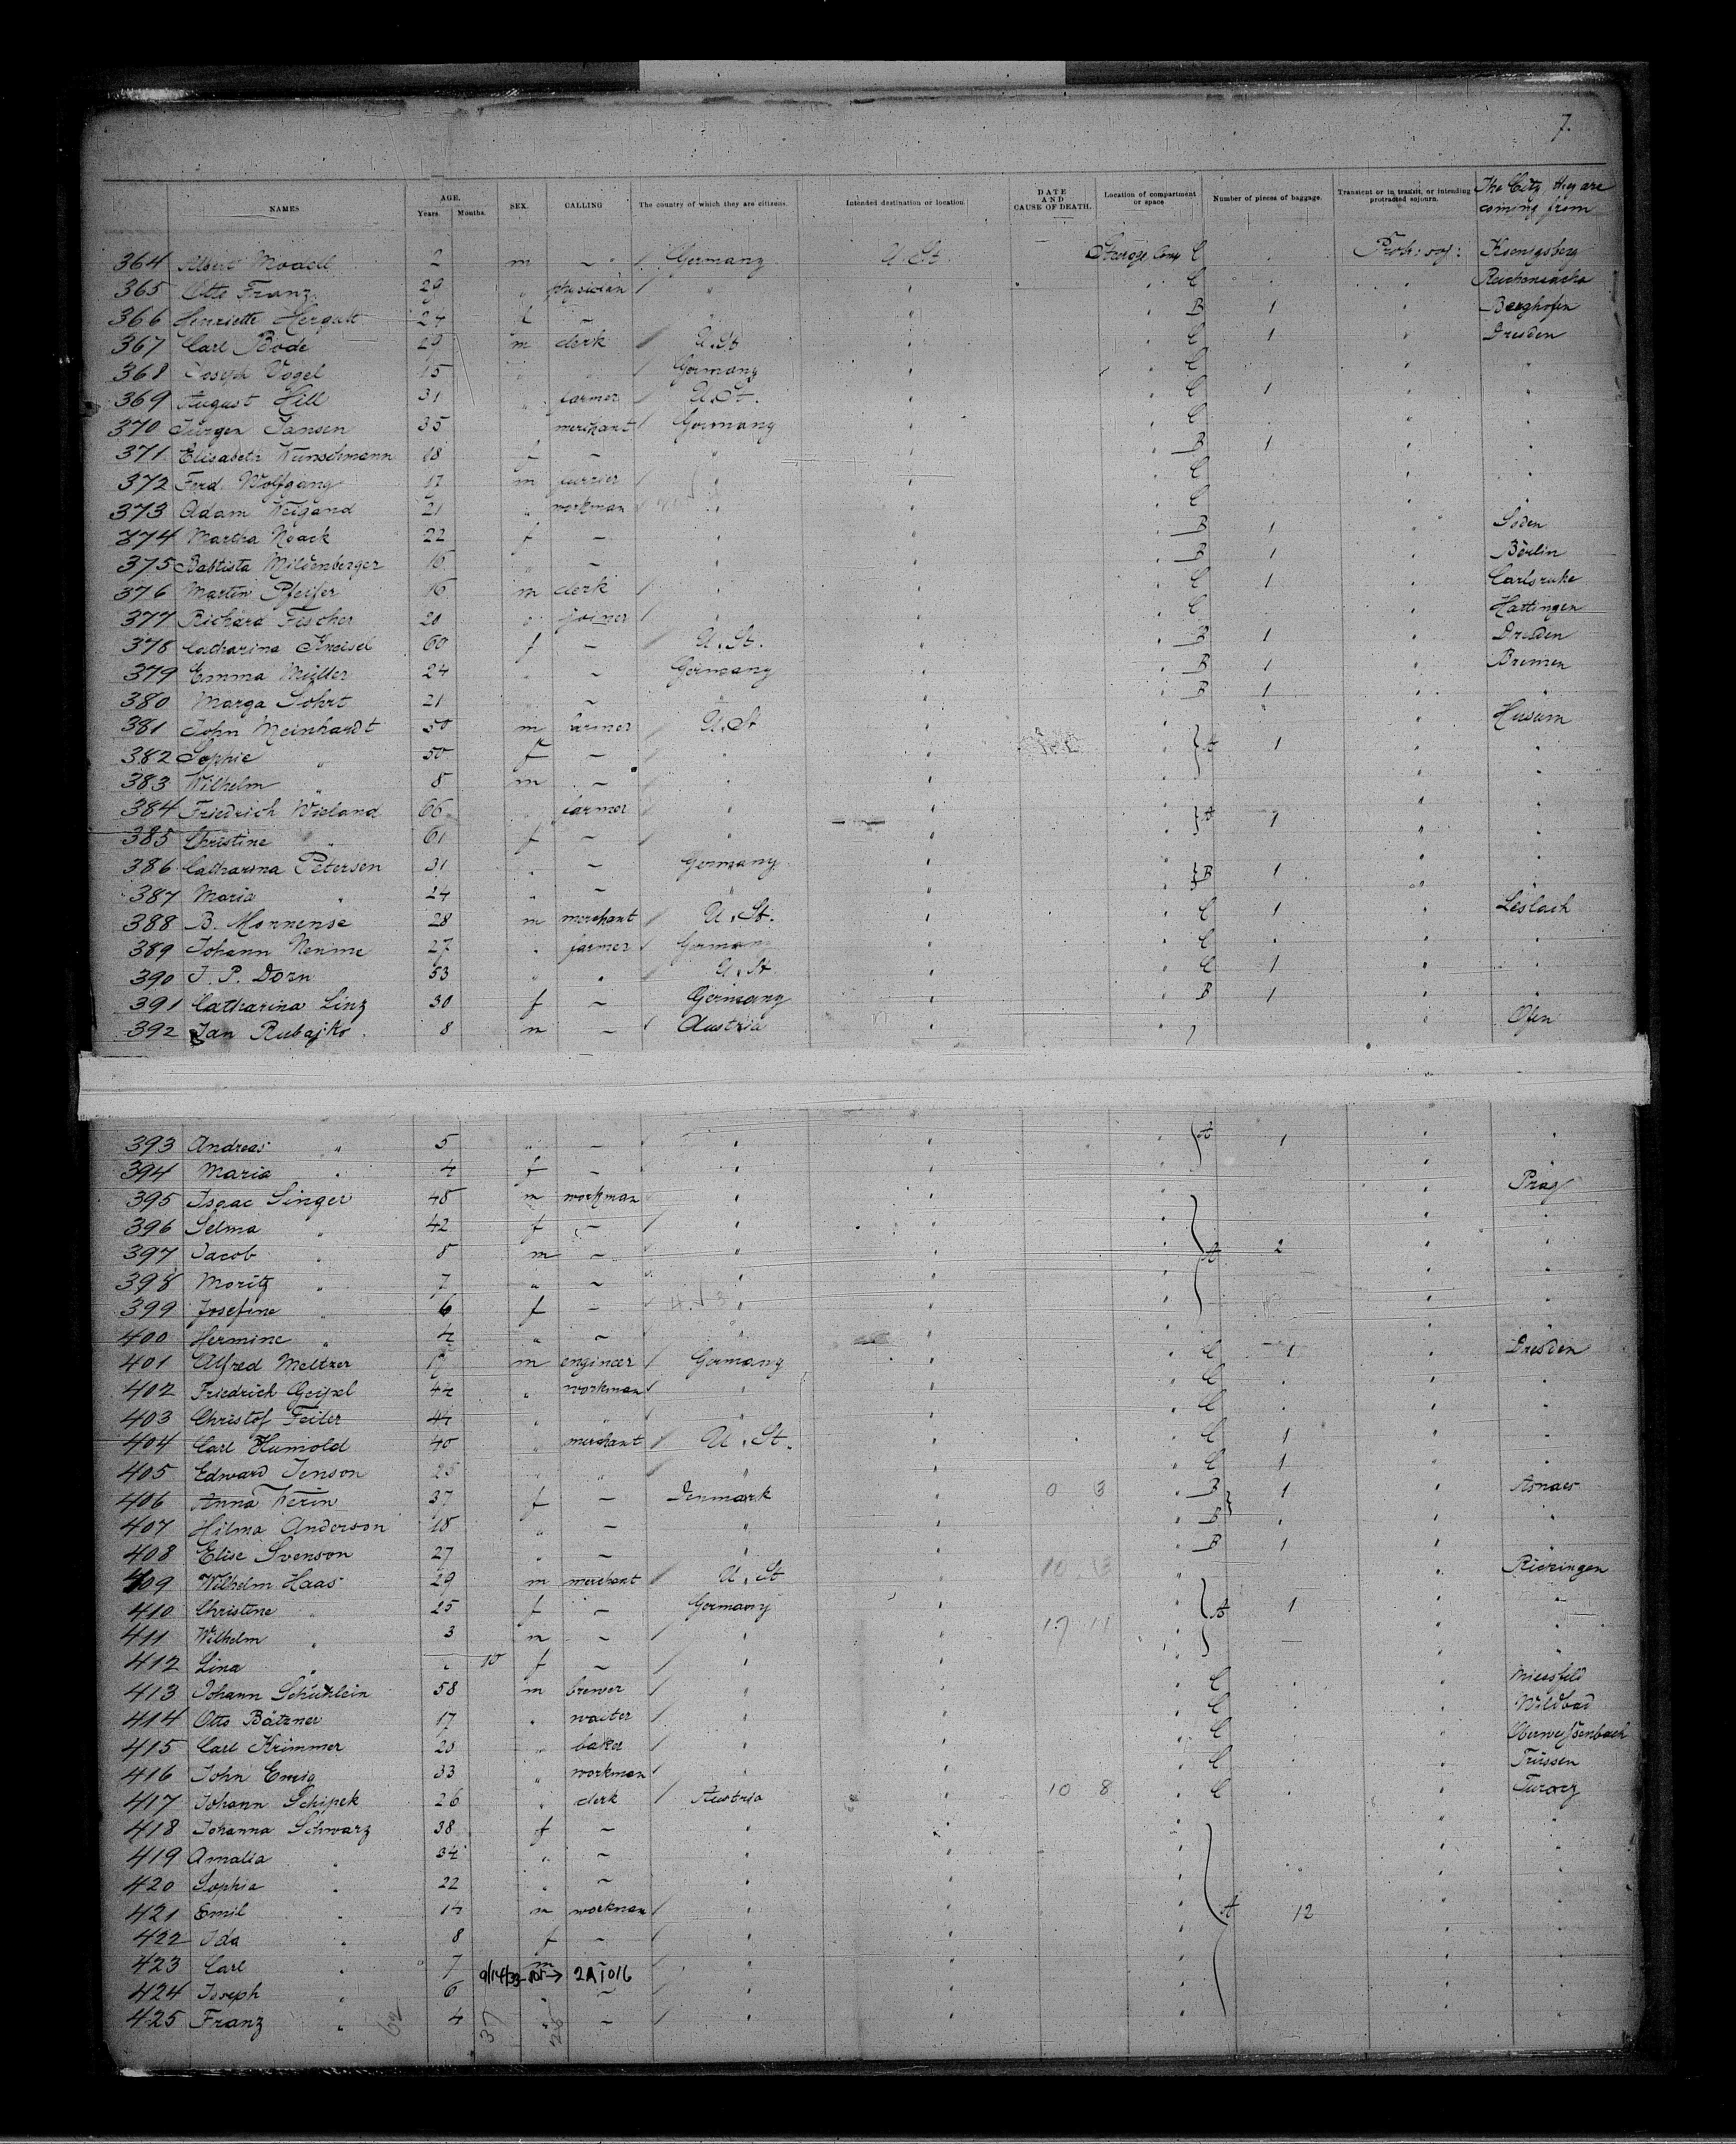 7.
NAMES AGE. Years. Months. SEX. CALLING The country of which they are citizens. Intended destination or location DATE AND CAUSE OF DEATH. Location of compartment or space Number of pieces of baggage. Transient or in transit, or intending protracted sojourn. The City they are coming from
364 Albert Modell 2 m – Germany U. St. Steerage Comp C Protr: soj: Koenigsberg
365 Otto Franz 29 " physician " " C "
366 Henriette 27 f – " " B 1 " Berghofen
367 Carl Bode 29 m clerk U. St " C 1 " Dresden
368 Joseph Vogel 15 " " Germany " C " "
369 August Hill 31 " farmer U. St. " C 1 " "
370 Jürgen Jansen 35 merchant Germany " C " "
371 Elisabeth Wunschmann 18 f – " " B 1 " "
372 Ferd. Wolfgang 17 m furrier " " C " "
373 Adam Weigand 21 " workman " " C " "
374 Martha Noack 22 f – " " B 1 " Soden
375 Babtista Mildenberger 16 " – " " B 1 " Berlin
376 Martin Pfeifer 16 m clerk " " C 1 " Carlsruhe
377 Richard Fischer 20 " joiner " " C " Hattingen
378 Catharina Kneisel 60 f – U. St. " B 1 " Dresden
379 Emma Müller 24 " – Germany " B 1 " Bremen
380 Marga Sohrt 21 " – " " B 1 " "
381 John Meinhardt 50 m farmer U. St " Husum
382 Sophie " 50 f – " " A 1 " "
383 Wilhelm " 8 m – " " " "
384 Friedrich Wieland 66 " farmer " " A 1 " "
385 Christine " 61 f – " " " "
386 Catharina Petersen 31 " – Germany " B 1 " "
387 Maria " 24 " – " " " "
388 B. 28 m merchant U. St. " C 1 " Leslach
389 Johann 27 " farmer Germany " C " "
390 J. P. Dorn 53 " " U. St. " C 1 " "
391 Catharina Linz 30 f – Germany " B 1 " "
392 Jan Rubajko 8 m – Austria " " Ofen
393 Andreas " 5 " – " " A 1 " "
394 Maria " 4 f – " " " "
395 Isaac Singer 48 m workman " " " Prag
396 Selma " 42 f – " " " "
397 Jacob " 8 m – " " A 2 " "
398 Moritz " 7 " – " " " "
399 Josefine " 6 f – " " " "
400 Hermine " 4 " – " " " "
401 Alfred Meltzer 17 m engineer Germany " C 1 " Dresden
402 Friedrich Geipel 44 " workman " " C " "
403 Christof Feiler 44 " " " " C " "
404 Carl Humold 40 " merchant U. St. " C 1 " "
405 Edward Jenson 25 " " " " C 1 " "
406 Anna Werin 37 f – Denmark " 0 3 B 1 " Asnaes
407 Hilma Anderson 18 " – " " B " "
408 Elise Svenson 27 " – " " B 1 " "
409 Wilhelm Haas 29 m merchant U. St " 10 3 " Riexingen
410 Christine " 25 f – Germany " A 1 " "
411 Wilhelm " 3 m – " " 17 11 " "
412 Lina " " 10 f – " " " "
413 Johann Schühlein 58 m brewer " " C "
414 Otto Bätzner 17 " waiter " " C " Wildbad
415 Carl Krimmer 20 " baker " " C "
416 John Emig 33 " workman " " C " Trüssen
417 Johann Schipek 26 " clerk Austria " 10 8 C " Turocz
418 Johanna Schwarz 38 f – " " " "
419 Amalia " 34 " – " " " "
420 Sophia " 22 " – " " " "
421 Emil " 14 m workman " " A 12 " "
422 Ida " 8 f – " " " "
423 Carl " 7 m – " " " "
9/14/33 → 2A 1016
424 Joseph " 6 " – " " " "
425 Franz " 4 " – " " " "
62 37 25